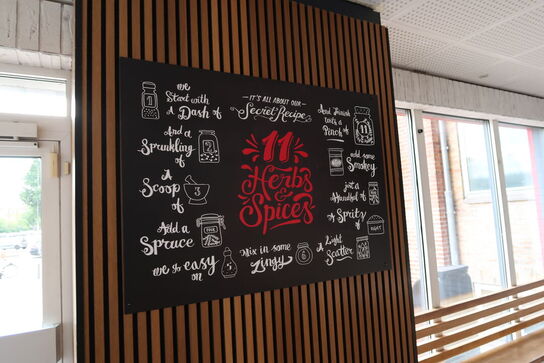 IT'S ALL ABOUT OUR
Secret Recipe
11
Herbs
&
Spices
we
Start with
A Dash of
1
And a
Sprinkling
of
2
A
Scoop
of
3
Add a
Spruce
we go easy
on
5
Mix in some
Zingy
6
A Light
Scatter
A Spritz
of
EIGHT
just a
Handful of
add some
Smokey
And Finish
with a
Pinch of
11